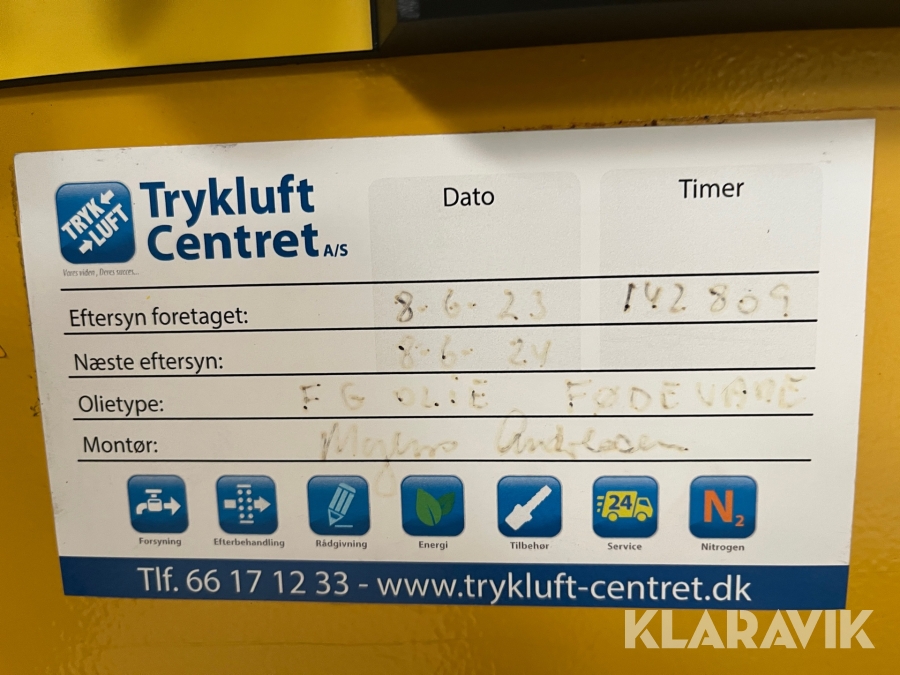 TRYK
LUFT
Trykluft
Centret A/S
Vores viden, Deres succes...
Dato
Timer
Eftersyn foretaget: 8-6-23 142809
Næste eftersyn: 8-6-24
Olietype: FG OLIE FØDEVARE
Montør:
Forsyning Efterbehandling Rådgivning Energi Tilbehør Service Nitrogen
24
N2
Tlf. 66 17 12 33 - www.trykluft-centret.dk
KLARAVIK